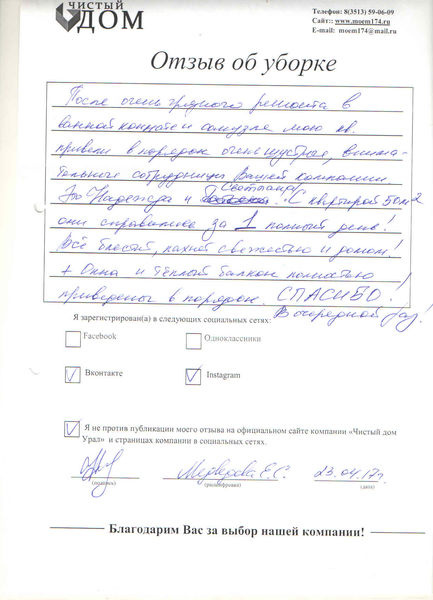 ЧИСТЫЙ
ДОМ
Телефон: 8(3513) 59-06-09
Сайт:: www.moem174.ru
E-mail: moem174@mail.ru
Отзыв об уборке
После очень грязного ремонта в
ванной комнате и санузле мою кв.
привели в порядок очень шустрые, внима-
тельные сотрудницы Вашей компании
Это Надежда и Светлана. С квартирой 50м2
они справились за 1 полный день!
Всё блестит, пахнет свежестью и домом!
+ Окна и тёплый балкон полностью
приведены в порядок. СПАСИБО!
В очередной раз!
Я зарегистрирован(а) в следующих социальных сетях:
Facebook
Одноклассники
Вконтакте
Instagram
Я не против публикации моего отзыва на официальном сайте компании «Чистый дом
Урал» и страницах компании в социальных сетях.
Медведева Е.С. 23.04.17г.
(подпись) (расшифровка) (дата)
Благодарим Вас за выбор нашей компании!